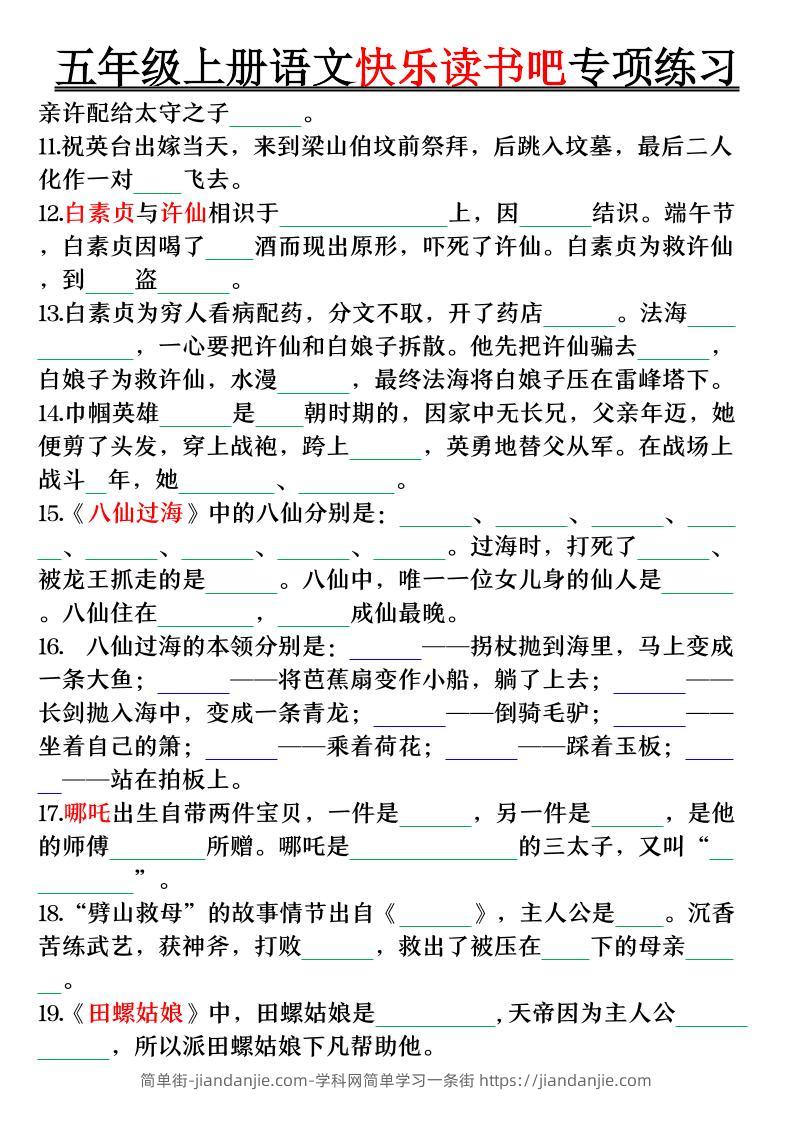 五年级上册语文快乐读书吧专项练习
亲许配给太守之子______。
11.祝英台出嫁当天，来到梁山伯坟前祭拜，后跳入坟墓，最后二人
化作一对____飞去。
12.白素贞与许仙相识于______________上，因______结识。端午节
，白素贞因喝了____酒而现出原形，吓死了许仙。白素贞为救许仙
，到____盗______。
13.白素贞为穷人看病配药，分文不取，开了药店______。法海____
________，一心要把许仙和白娘子拆散。他先把许仙骗去______，
白娘子为救许仙，水漫______，最终法海将白娘子压在雷峰塔下。
14.巾帼英雄______是____朝时期的，因家中无长兄，父亲年迈，她
便剪了头发，穿上战袍，跨上______，英勇地替父从军。在战场上
战斗__年，她________、________。
15.《八仙过海》中的八仙分别是：______、______、______、____
__、______、______、______、______。过海时，打死了______、
被龙王抓走的是______。八仙中，唯一一位女儿身的仙人是______
。八仙住在________，______成仙最晚。
16. 八仙过海的本领分别是：______——拐杖抛到海里，马上变成
一条大鱼；______——将芭蕉扇变作小船，躺了上去；______——
长剑抛入海中，变成一条青龙；______——倒骑毛驴；______——
坐着自己的箫；______——乘着荷花；______——踩着玉板；____
__——站在拍板上。
17.哪吒出生自带两件宝贝，一件是______，另一件是______，是他
的师傅________所赠。哪吒是______________的三太子，又叫“__
________”。
18.“劈山救母”的故事情节出自《______》，主人公是____。沉香
苦练武艺，获神斧，打败______，救出了被压在____下的母亲____
__。
19.《田螺姑娘》中，田螺姑娘是__________,天帝因为主人公______
______，所以派田螺姑娘下凡帮助他。
简单街-jiandanjie.com-学科网简单学习一条街 https://jiandanjie.com